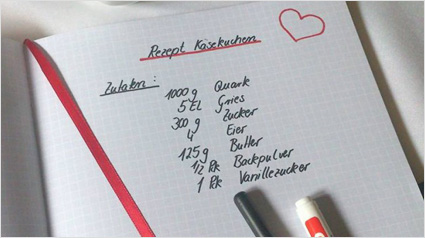 Rezept Käsekuchen
Zutaten:
1000 g Quark
5 EL Gries
300 g Zucker
4 Eier
125 g Butter
1/2 Pk Backpulver
1 Pk Vanillezucker